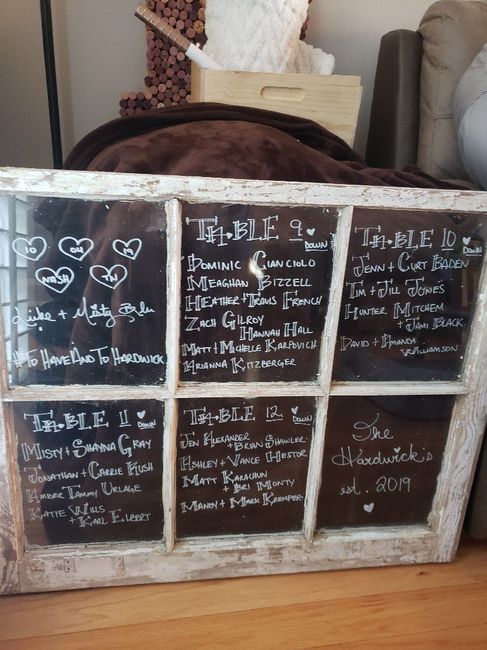 IO OU IN
NASH TN
Luke + Misty
#To HAVE AND To HARDWICK
TABLE 9 DOWN
DOMINIC CIANCIOLO
MEAGHAN BIZZELL
HEATHER + TRAVIS FRENCH
ZACH GILROY
HANNAH HALL
MATT + MICHELLE KARPOVICH
ARIANNA KITZBERGER
TABLE 10 DOWN
JENN + CURT BADEN
TIM + JILL JONES
HUNTER MITCHEM
+ JAMI BLACK
DAVID + AMANDA
WILLIAMSON
TABLE 11 DOWN
MISTY + SHAYNA GRAY
JONATHAN + CARRIE RUSH
AMBER TAMMY URLAGE
KATIE WILLS
+ KARL ELBERT
TABLE 12 DOWN
JEN ALEXANDER
+ BRIAN SHAWLER
ASHLEY + VANCE HESTOR
MATT KARACHUN
+ BRI MONTY
MANDY + MARK KAEMPER
The
Hardwick's
est. 2019